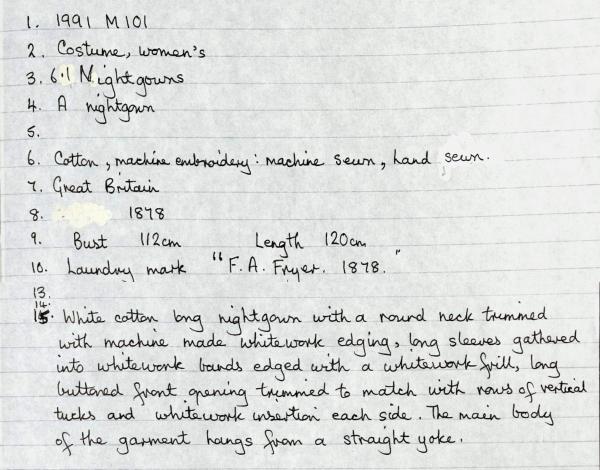 1. 1991 M101
2. Costume, women's
3. 6.1 Nightgowns
4. A nightgown
5.
6. Cotton, machine embroidery: machine sewn, hand sewn.
7. Great Britain
8. 1878
9. Bust 112cm Length 120cm
10. Laundry mark "F. A. Fryer. 1878."
13.
14.
15. White cotton long nightgown with a round neck trimmed
with machine made whitework edging, long sleeves gathered
into whitework bands edged with a whitework frill, long
buttoned front opening trimmed to match with rows of vertical
tucks and whitework insertion each side. The main body
of the garment hangs from a straight yoke.